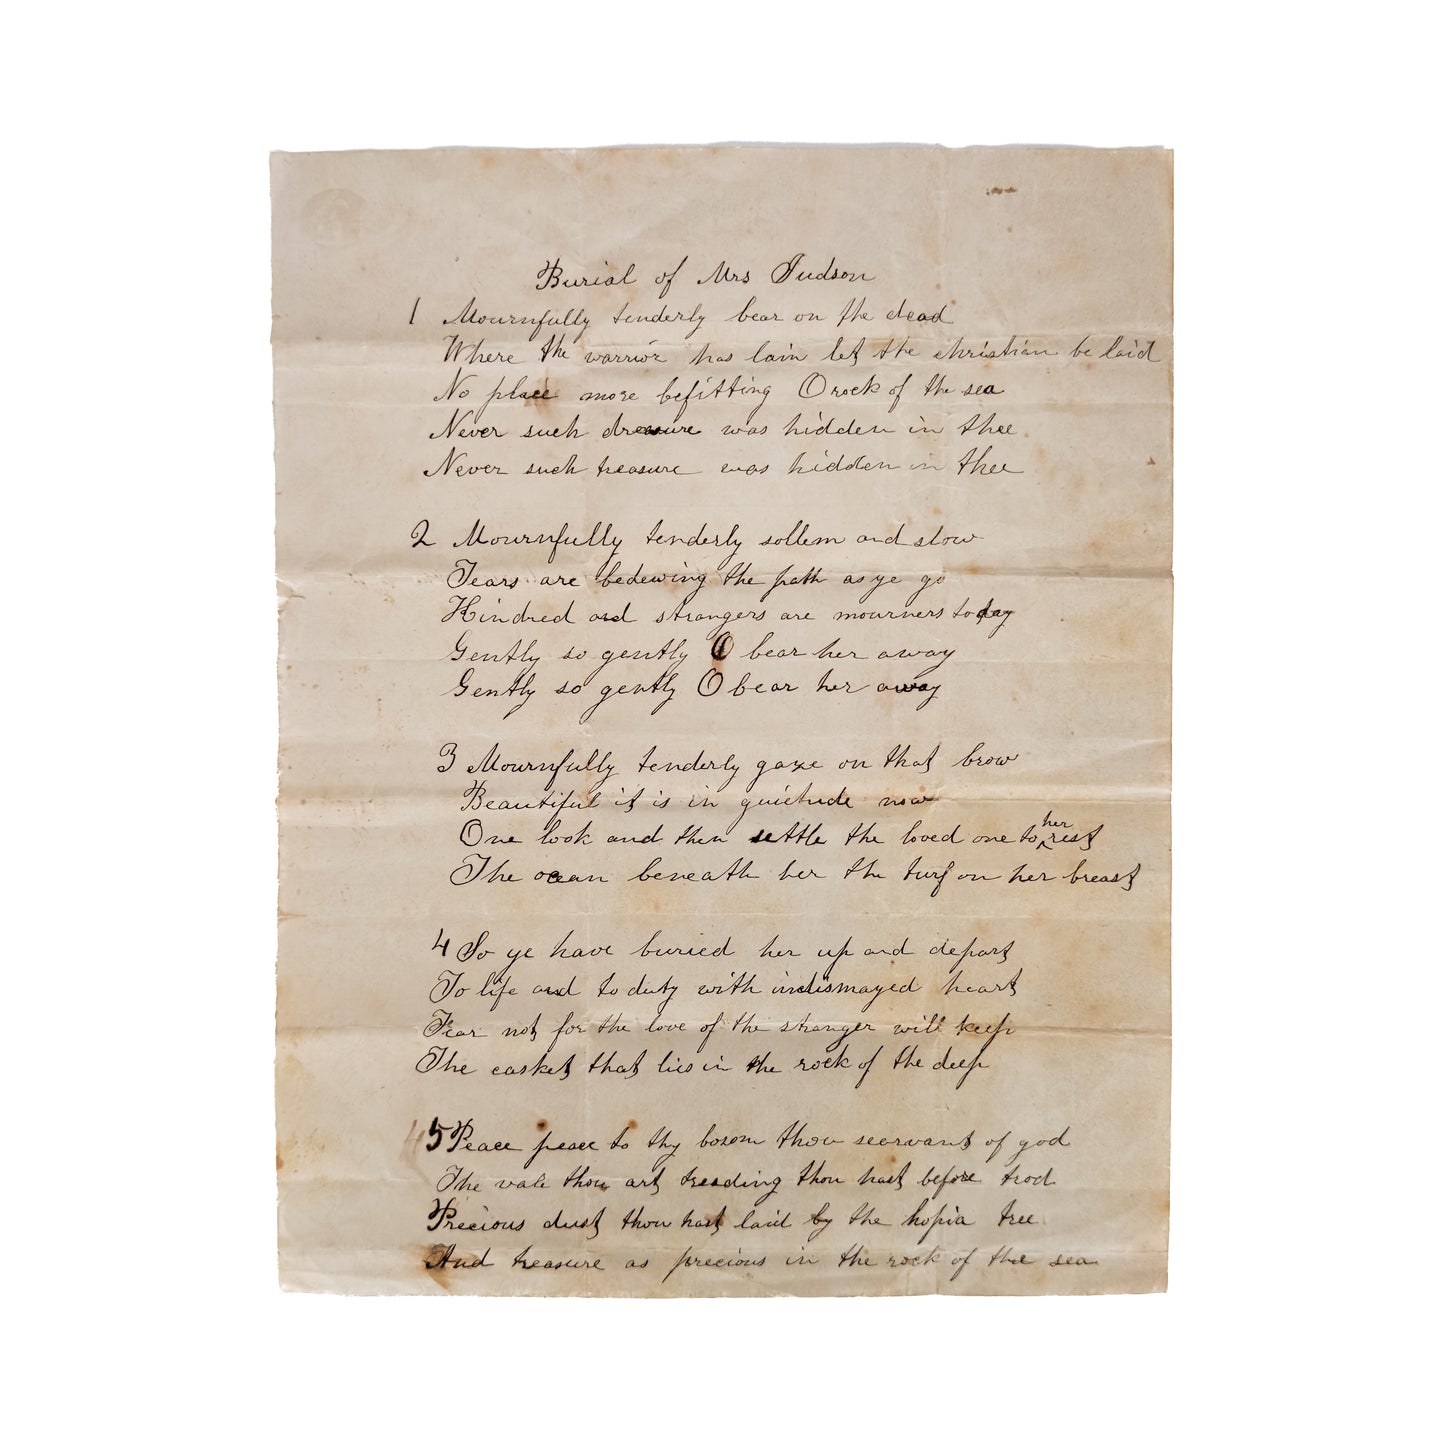 Burial of Mrs Judson
1 Mournfully tenderly bear on the dead
Where the warrior has lain let the christian be laid
No place more befitting O rock of the sea
Never such dreasure was hidden in thee
Never such treasure was hidden in thee
2 Mournfully tenderly sollem and slow
Tears are bedewing the path as ye go
Kindred and strangers are mourners today
Gently so gently O bear her away
Gently so gently O bear her away
3 Mournfully tenderly gaze on that brow
Beautiful it is in quietude now
One look and then settle the loved one to her rest
The ocean beneath her the turf on her breast
4 So ye have buried her up and depart
To life and to duty with undismayed heart
Fear not for the love of the stranger will keep
The casket that lies in the rock of the deep
5 Peace peace to thy bosom thou searvant of god
The vale thou art treading thou hast before trod
Precious dust thou hast laid by the hopia tree
And treasure as precious in the rock of the sea